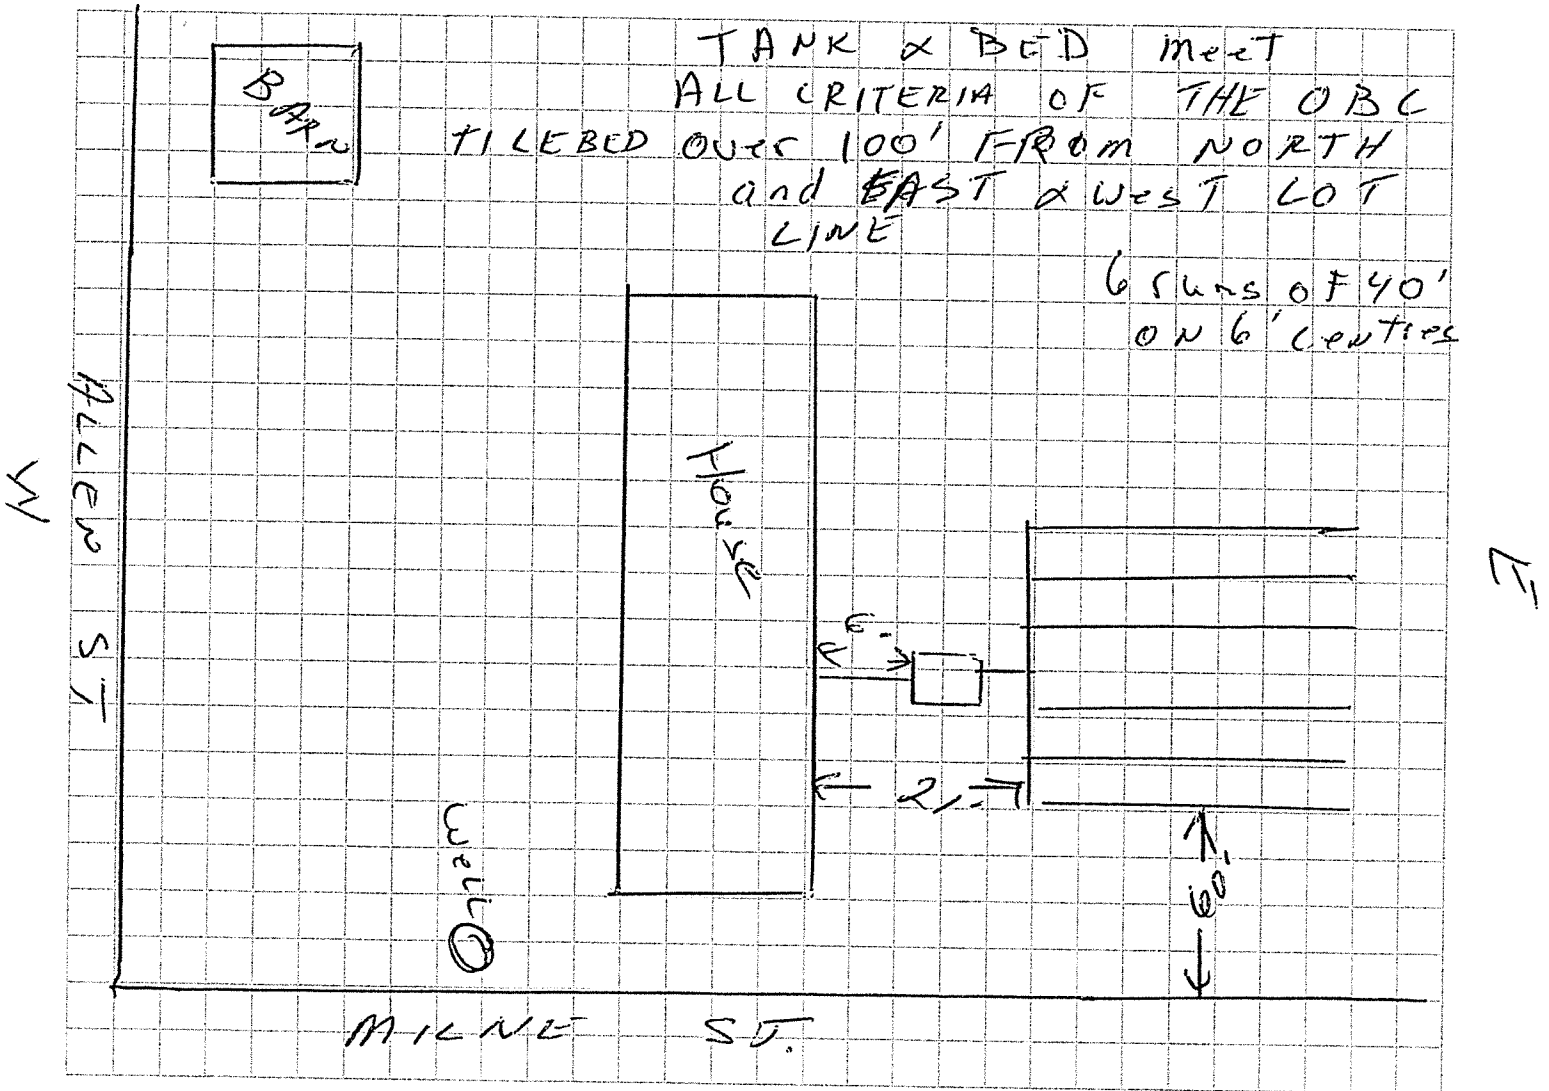 TANK & BED meet
ALL CRITERIA OF THE OBC
TILEBED over 100' FROM NORTH
and EAST & WEST LOT
LINE
6 runs of 40'
ON 6' centres
BARN
House
ALLEN ST
W
E
Well
60'
MILNE ST.